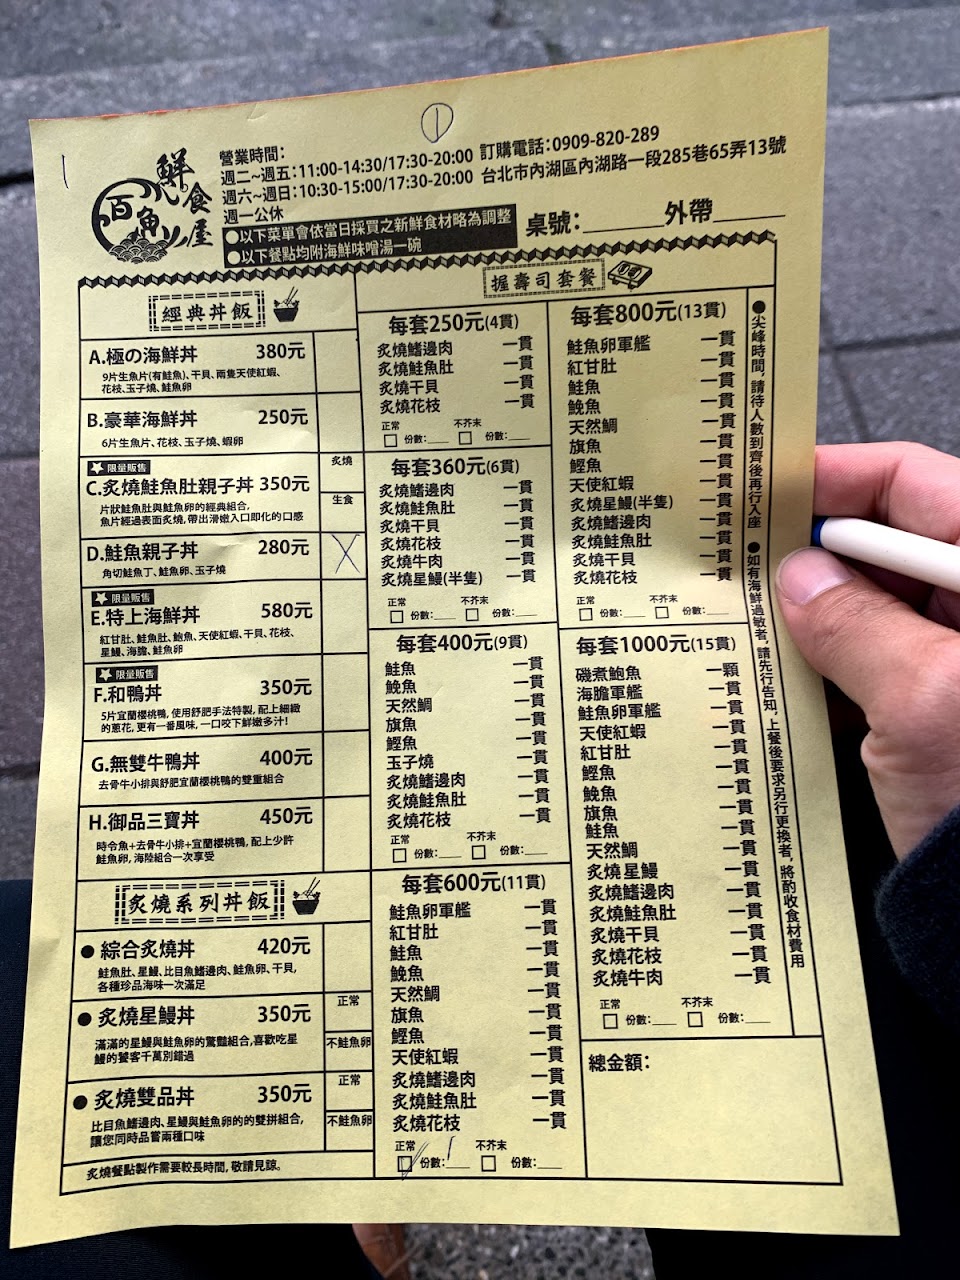 1
1
百魚
鮮食屋
營業時間:
週二~週五:11:00-14:30/17:30-20:00 訂購電話:0909-820-289
週六~週日:10:30-15:00/17:30-20:00 台北市內湖區內湖路一段285巷65弄13號
週一公休
●以下菜單會依當日採買之新鮮食材略為調整
●以下餐點均附海鮮味噌湯一碗
桌號:______外帶______
經典丼飯
A.極の海鮮丼 380元
9片生魚片(有鮭魚)、干貝、兩隻天使紅蝦、
花枝、玉子燒、鮭魚卵
B.豪華海鮮丼 250元
6片生魚片、花枝、玉子燒、蝦卵
限量販售
C.炙燒鮭魚肚親子丼 350元
片狀鮭魚肚與鮭魚卵的經典組合,
魚片經過表面炙燒,帶出滑嫩入口即化的口感
炙燒
生食
D.鮭魚親子丼 280元
角切鮭魚丁、鮭魚卵、玉子燒
X
限量販售
E.特上海鮮丼 580元
紅甘肚、鮭魚肚、鮑魚、天使紅蝦、干貝、花枝、
星鰻、海膽、鮭魚卵
限量販售
F.和鴨丼 350元
5片宜蘭櫻桃鴨,使用舒肥手法特製,配上細緻
的蔥花,更有一番風味,一口咬下鮮嫩多汁!
G.無雙牛鴨丼 400元
去骨牛小排與舒肥宜蘭櫻桃鴨的雙重組合
H.御品三寶丼 450元
時令魚+去骨牛小排+宜蘭櫻桃鴨,配上少許
鮭魚卵,海陸組合一次享受
炙燒系列丼飯
● 綜合炙燒丼 420元
鮭魚肚、星鰻、比目魚鰭邊肉、鮭魚卵、干貝,
各種珍品海味一次滿足
● 炙燒星鰻丼 350元
滿滿的星鰻與鮭魚卵的驚豔組合,喜歡吃星
鰻的饕客千萬別錯過
正常
不鮭魚卵
● 炙燒雙品丼 350元
比目魚鰭邊肉、星鰻與鮭魚卵的的雙拼組合,
讓您同時品嘗兩種口味
正常
不鮭魚卵
炙燒餐點製作需要較長時間,敬請見諒。
握壽司套餐
每套250元(4貫)
炙燒鰭邊肉 一貫
炙燒鮭魚肚 一貫
炙燒干貝 一貫
炙燒花枝 一貫
正常 不芥末
□ 份數:___ □ 份數:___
每套360元(6貫)
炙燒鰭邊肉 一貫
炙燒鮭魚肚 一貫
炙燒干貝 一貫
炙燒花枝 一貫
炙燒牛肉 一貫
炙燒星鰻(半隻) 一貫
正常 不芥末
□ 份數:___ □ 份數:___
每套400元(9貫)
鮭魚 一貫
鮸魚 一貫
天然鯛 一貫
旗魚 一貫
鰹魚 一貫
玉子燒 一貫
炙燒鰭邊肉 一貫
炙燒鮭魚肚 一貫
炙燒花枝 一貫
正常 不芥末
□ 份數:___ □ 份數:___
每套600元(11貫)
鮭魚卵軍艦 一貫
紅甘肚 一貫
鮭魚 一貫
鮸魚 一貫
天然鯛 一貫
旗魚 一貫
鰹魚 一貫
天使紅蝦 一貫
炙燒鰭邊肉 一貫
炙燒鮭魚肚 一貫
炙燒花枝 一貫
正常 不芥末
☑ 份數:_1_ □ 份數:___
每套800元(13貫)
鮭魚卵軍艦 一貫
紅甘肚 一貫
鮭魚 一貫
鮸魚 一貫
天然鯛 一貫
旗魚 一貫
鰹魚 一貫
天使紅蝦 一貫
炙燒星鰻(半隻) 一貫
炙燒鰭邊肉 一貫
炙燒鮭魚肚 一貫
炙燒干貝 一貫
炙燒花枝 一貫
正常 不芥末
□ 份數:___ □ 份數:___
每套1000元(15貫)
磯煮鮑魚 一顆
海膽軍艦 一貫
鮭魚卵軍艦 一貫
天使紅蝦 一貫
紅甘肚 一貫
鰹魚 一貫
鮸魚 一貫
旗魚 一貫
鮭魚 一貫
天然鯛 一貫
炙燒星鰻 一貫
炙燒鰭邊肉 一貫
炙燒鮭魚肚 一貫
炙燒干貝 一貫
炙燒花枝 一貫
炙燒牛肉 一貫
正常 不芥末
□ 份數:___ □ 份數:___
總金額:
●尖峰時間,請待人數到齊後再行入座 ●如有海鮮過敏者,請先行告知,上餐後要求另行更換者,將酌收食材費用